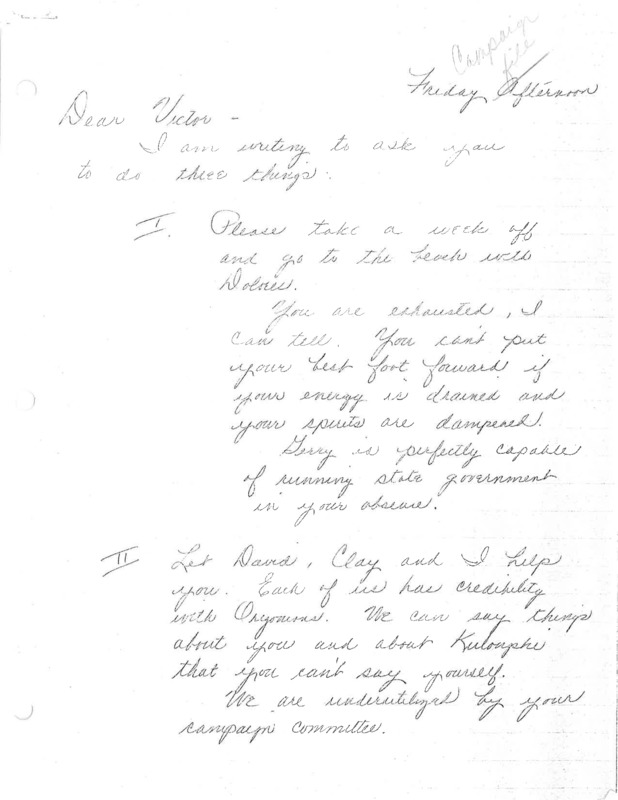 Campaign
file
Friday Afternoon
Dear Victor -
I am writing to ask you
to do three things:
I. Please take a week off
and go to the beach with
Dolores.
You are exhausted, I
can tell. You can't put
your best foot forward if
your energy is drained and
your spirits are dampened.
Gerry is perfectly capable
of running state government
in your absense.
II Let David, Clay and I help
you. Each of us has credibility
with Oregonians. We can say things
about you and about Kulongski
that you can't say yourself.
We are underutilized by your
campaign committee.